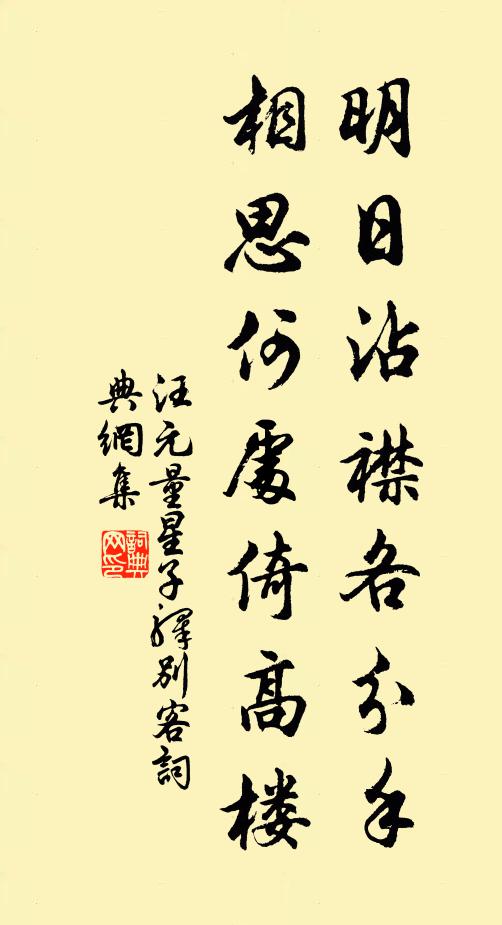 明日沾襟各分手
相思何處倚高楼
汪元量星子驛別客詞
典網集
詞典网印